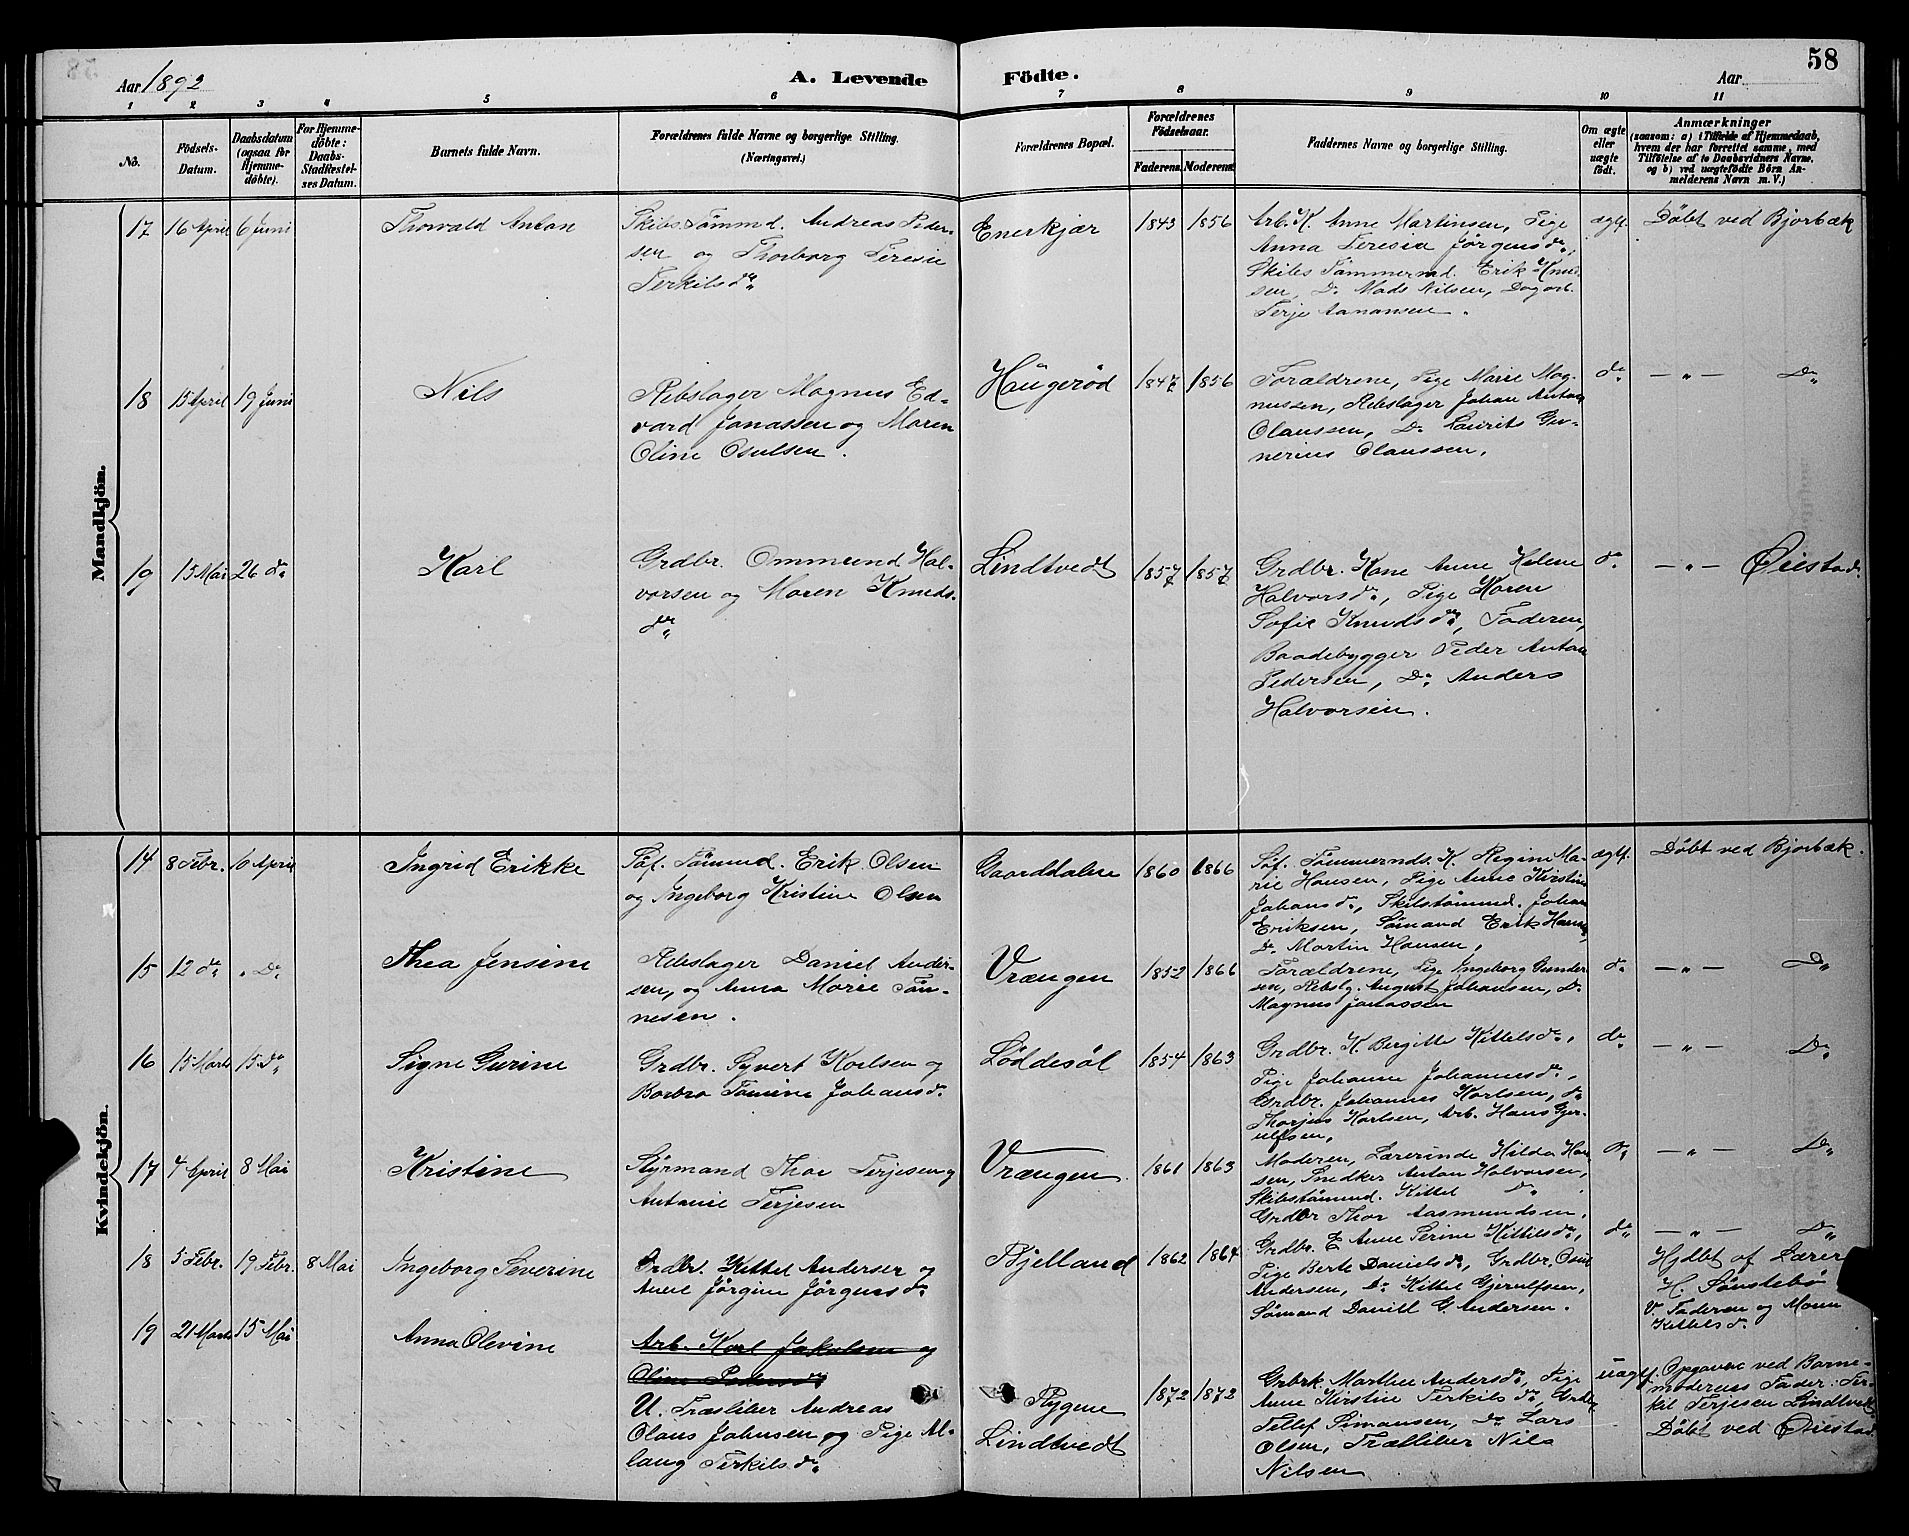 58
Aar 1892
A. Levende Födte.
Aar
1 2 3 4 5 6 7 8 9 10 11
No.
Födsels-Datum.
Daabsdatum (ogsaa for Hjemme-döbte).
For Hjemme-döbte: Daabs-Stadfæstel-ses Datum.
Barnets fulde Navn.
Forældrenes fulde Navne og borgerlige Stilling. (Næringsvei.)
Forældrenes Bopæl.
Forældrenes Födselsaar.
Faderens. Moderens.
Faddernes Navne og borgerlige Stilling.
Om ægte eller uægte födt.
Anmærkninger
(saasom: a) i Tilfælde af Hjemmedaab, hvem der har forrettet samme, med Tilföielse af to Daabsvidners Navne, og b) ved uægtefödte Börn Anmelderens Navn m. V.)
Mandkjön.
17 16 April 6 Juni Thorvald Anton
Skibs Tömmd. Andreas Peder-
sen og Thorborg Teresie
Terkilsdr
Enerkjær 1843 1856
Arb. K. Anne Martinsen, Pige
Anna Teresia Jörgensdr,
Skibs Tömmermd. Erik Knud-
sen, Do Mads Nilsen, Dagarb.
Terje Aanansen.
ægtf. Döbt ved Bjorbæk
18 15 April 19 Juni Nils
Rebslager Magnus Ed-
vard Jonassen og Maren
Oline Osulsen.
Haugeröd 1847 1856
Forældrene, Pige Marie Mag-
nussen, Rebslager Johan Anton
Olaussen, Do Laurits Gu-
nerius Olaussen.
do — „ — Do
19 15 Mai 26 do Karl
Grdbr. Ommund Hal-
vorsen og Maren Knuds-
dr
Lindtvedt 1857 1857
Grdbr. Kone Anne Helene
Halvorsdr, Pige Karen
Sofie Knudsdr, Faderen,
Baadebygger Peder Anton
Pedersen, Do Anders
Halvorsen.
do — „ — Öiestad
Kvindekjön.
14 8 Febr. 10 April Ingrid Erikke
Töf. Tömmd. Erik Olsen
og Ingeborg Kristine Olsen
Gaarddalen 1860 1866
Töf. Tömmermds. K. Regine Ma-
rie Hansen, Pige Anne Kirstine
Johansdr, Skibstömmd. Johan
Eriksen, Sömand Erik Hansen,
Do Martin Hansen,
ægtf. Döbt ved Bjorbæk.
15 12 do „ Do Thea Jensine
Rebslager Daniel Ander-
sen, og Anna Marie Tön-
nesen.
Vrængen 1852 1866
Forældrene, Pige Ingeborg Gunder-
sen, Rebslg. August Johansen, Do
Magnus Jonassen
do — „ — Do
16 15 Marts 15 Do Signe Gurine
Grdbr. Syvert Koelsen og
Borbro Tomine Johansdr
Löddesöl 1854 1863
Grdbr. K. Bergitte Kittelsdr,
Pige Johanne Johannesdr,
Grdbr. Johannes Karlsen, do
Thorjus Karlsen, Arb. Hans Gjer-
ulfsen,
do — „ — Do
17 4 April 8 Mai Kristine
Styrmand Thor Terjesen og
Antonie Terjesen
Vrængen 1861 1863
Moderen, Lærerinde Hilda Han-
sen, Snedker Anton Halvorsen,
Skibstömmd. Kittel Do
Grdbr Thor Aasmundsen.
do — „ — Do
18 5 Febr. 19 Febr. 8 Mai Ingeborg Severine
Grdbr. Kittel Andersen og
Anne Jörgine Jörgensdr
Bjelland 1862 1864
Grdbr. E Anne Serine Kittilsdr,
Pige Berte Danielsdr, Grdbr. Osul
Andersen, Do Kittel Gjerulfsen,
Sömand Daniel G. Andersen.
do — „ — Do
Hjdbt af Lærer
H. Sönstebö
V. Faderen og Maren
Kittelsdr
19 21 Marts 15 Mai Anna Olevine
Arb. Karl Jakobsen og
Oline Pedersdr
U. Træsliber Andreas
Olaus Johnsen og Pige Al-
laug Terkilsdr
Rygene
Lindtvedt
1872 1872
Grbrk Marthe Andersdr, Pige
Anne Kirstine Terkilsdr, Grdbr
Tellef Simonsen, Do Lars
Olsen, Træsliber Nils
Nilsen
uægtf. Opgavene ved Barne-
moderens Fader: Ter-
kil Terjesen Lindtvedt
Döbt ved Öiestad